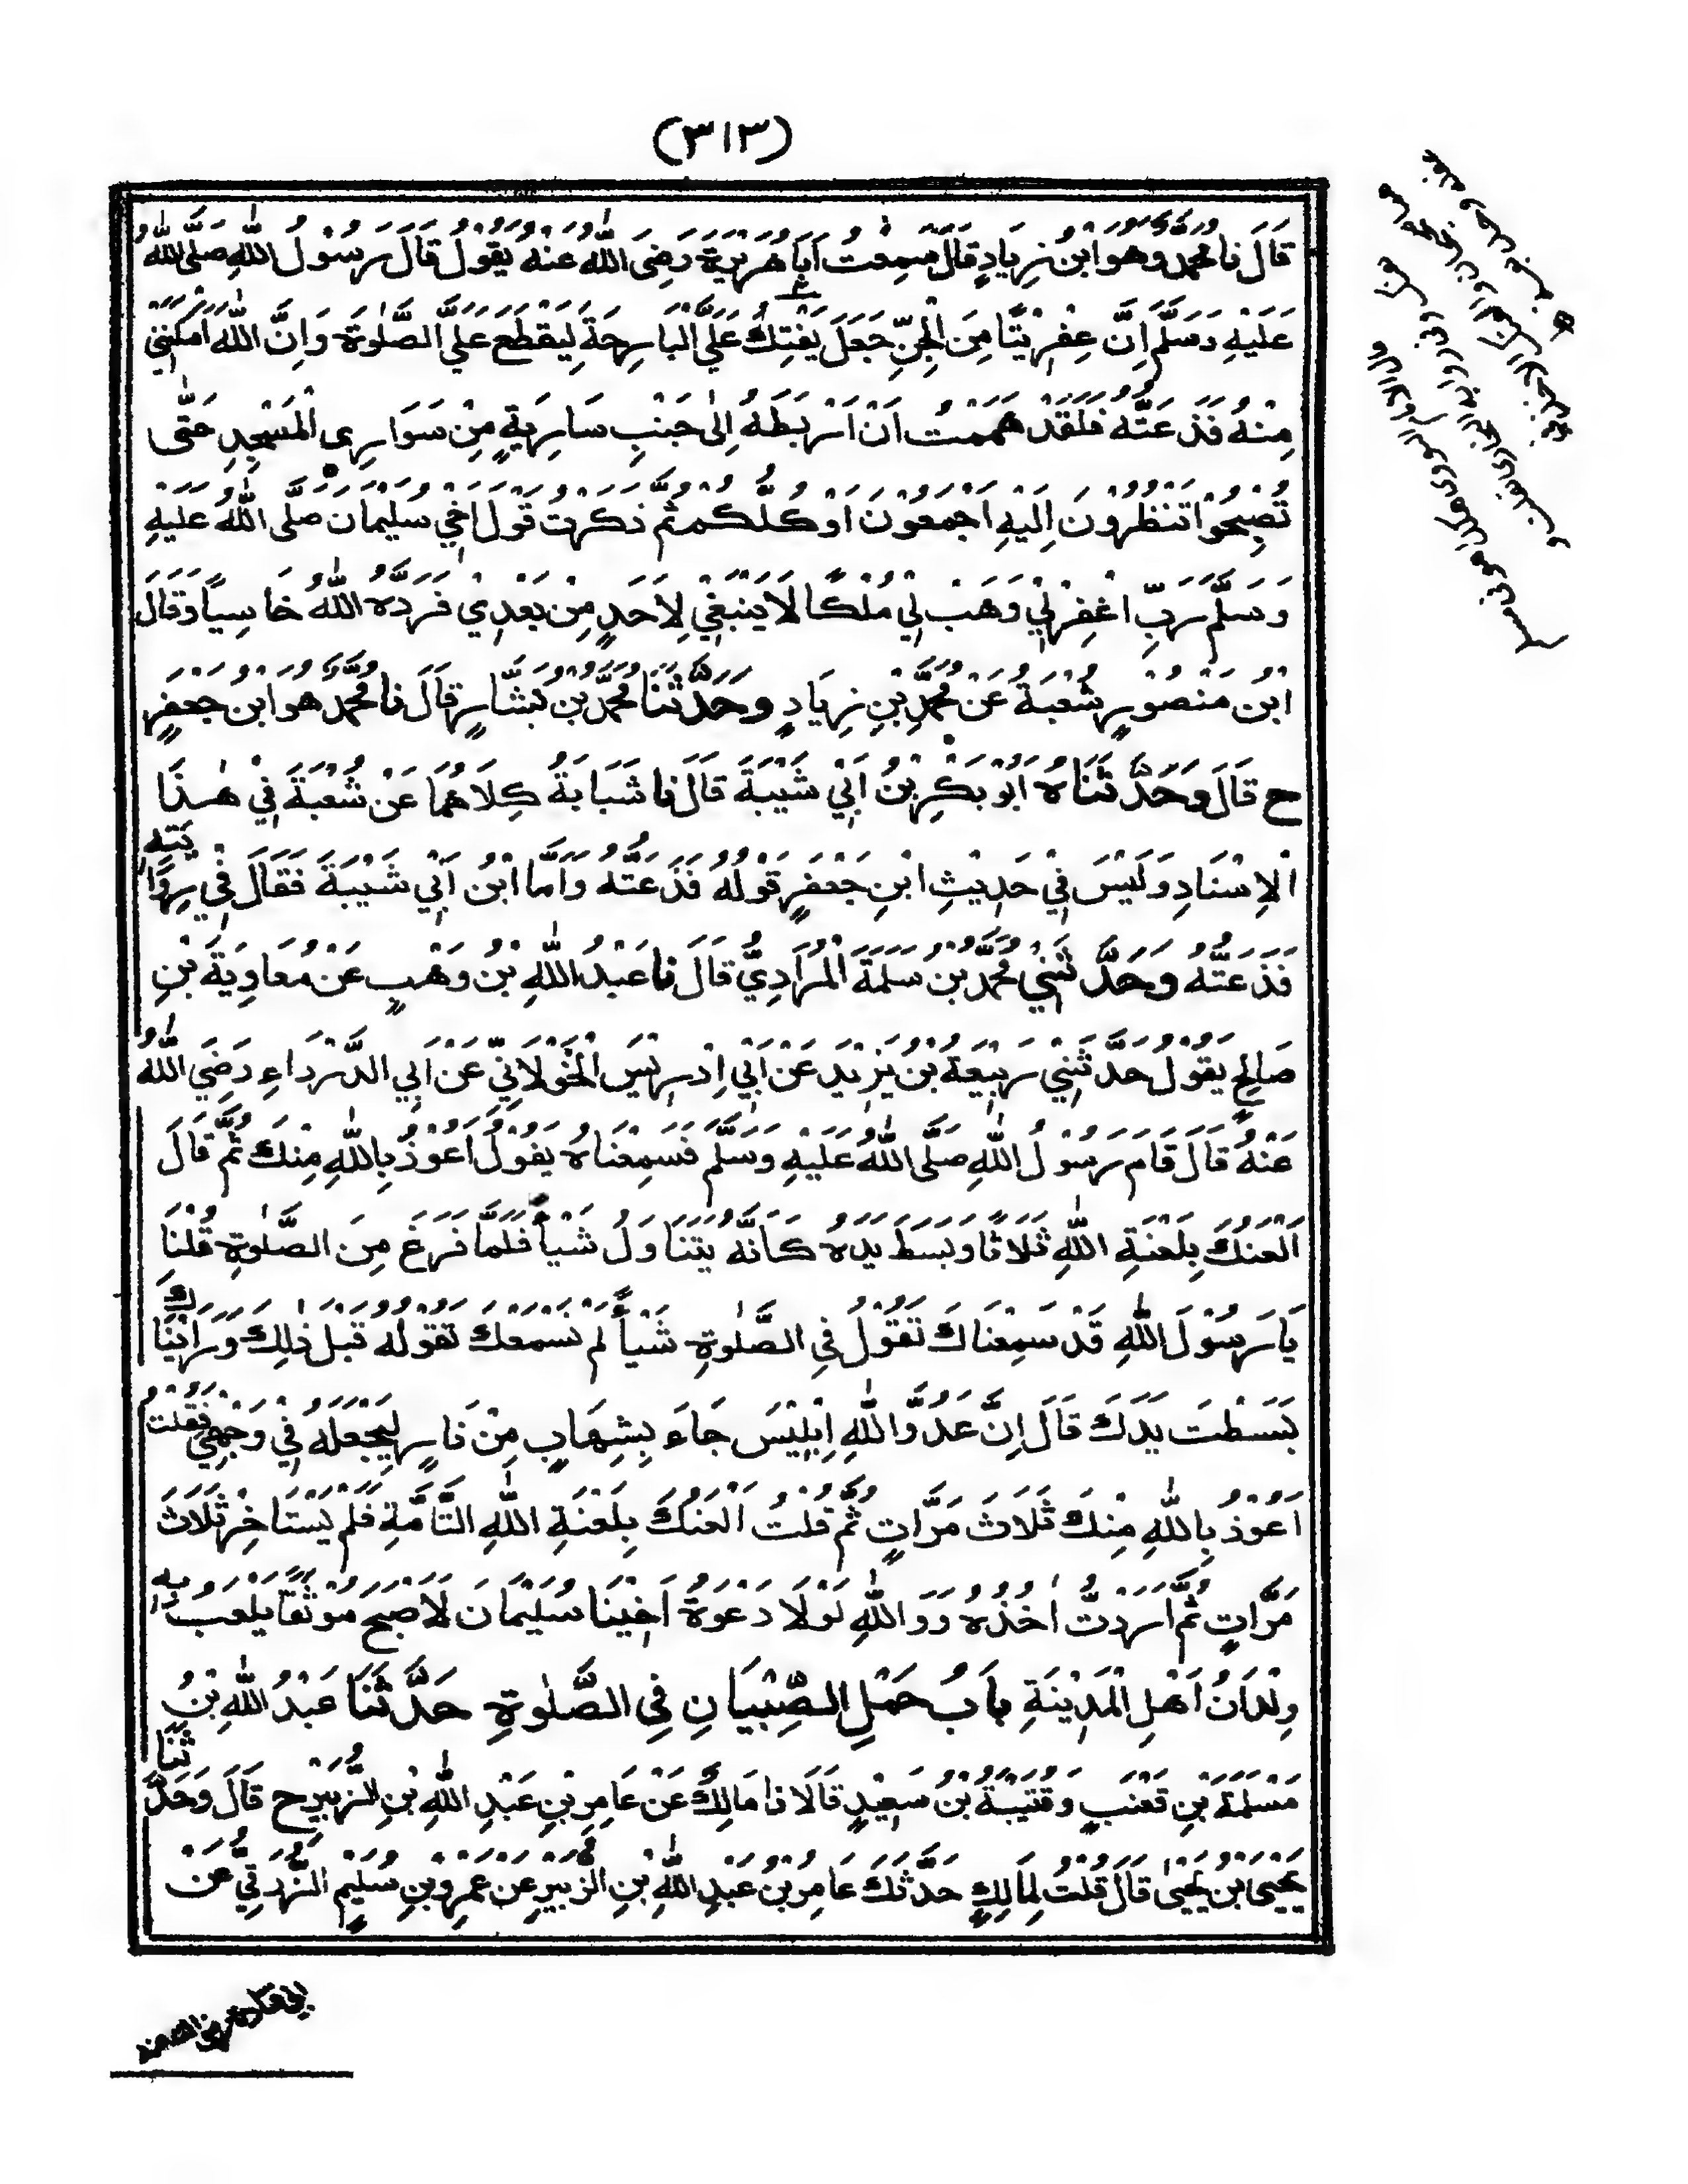 (٣١٣)
قَالَ نَا مُحَمَّدٌ وَهُوَ ابْنُ زِيَادٍ قَالَ سَمِعْتُ اَبَا هُرَيْرَةَ رَضِىَ اللّٰهُ عَنْهُ يَقُوْلُ قَالَ رَسُوْلُ اللّٰهِ صَلَّى اللّٰهُ
عَلَيْهِ وَسَلَّمَ اِنَّ عِفْرِيْتًا مِنَ الْجِنِّ جَعَلَ يَفْتِكُ عَلَيَّ الْبَارِحَةَ لِيَقْطَعَ عَلَيَّ الصَّلٰوةَ وَاِنَّ اللّٰهَ اَمْكَنَنِيْ
مِنْهُ فَذَعَتُّهُ فَلَقَدْ هَمَمْتُ اَنْ اَرْبِطَهُ اِلٰى جَنْبِ سَارِيَةٍ مِنْ سَوَارِى الْمَسْجِدِ حَتّٰى
تُصْبِحُوْا تَنْظُرُوْنَ اِلَيْهِ اَجْمَعُوْنَ اَوْ كُلُّكُمْ ثُمَّ ذَكَرْتُ قَوْلَ اَخِيْ سُلَيْمَانَ صَلَّى اللّٰهُ عَلَيْهِ
وَسَلَّمَ رَبِّ اغْفِرْ لِيْ وَهَبْ لِيْ مُلْكًا لَا يَنْبَغِيْ لِاَحَدٍ مِنْ بَعْدِيْ فَرَدَّهُ اللّٰهُ خَاسِيًا وَقَالَ
ابْنُ مَنْصُوْرٍ شُعْبَةُ عَنْ مُحَمَّدِ بْنِ زِيَادٍ وَحَدَّثَنَا مُحَمَّدُ بْنُ بَشَّارٍ قَالَ نَا مُحَمَّدٌ هُوَ ابْنُ جَعْفَرٍ
ح قَالَ وَحَدَّثَنَاهُ اَبُوْ بَكْرِ بْنُ اَبِيْ شَيْبَةَ قَالَ نَا شَبَابَةُ كِلَاهُمَا عَنْ شُعْبَةَ فِيْ هٰذَا
الْاِسْنَادِ وَلَيْسَ فِيْ حَدِيْثِ ابْنِ جَعْفَرٍ قَوْلُهُ فَذَعَتُّهُ وَاَمَّا ابْنُ اَبِيْ شَيْبَةَ فَقَالَ فِيْ رِوَايَتِهِ
فَذَعَتُّهُ وَحَدَّثَنِيْ مُحَمَّدُ بْنُ سَلَمَةَ الْمُرَادِيُّ قَالَ نَا عَبْدُ اللّٰهِ بْنُ وَهْبٍ عَنْ مُعَاوِيَةَ بْنِ
صَالِحٍ يَقُوْلُ حَدَّثَنِيْ رَبِيْعَةُ بْنُ يَزِيْدَ عَنْ اَبِيْ اِدْرِيْسَ الْخَوْلَانِيِّ عَنْ اَبِي الدَّرْدَاءِ رَضِيَ اللّٰهُ
عَنْهُ قَالَ قَامَ رَسُوْلُ اللّٰهِ صَلَّى اللّٰهُ عَلَيْهِ وَسَلَّمَ فَسَمِعْنَاهُ يَقُوْلُ اَعُوْذُ بِاللّٰهِ مِنْكَ ثُمَّ قَالَ
اَلْعَنُكَ بِلَعْنَةِ اللّٰهِ ثَلَاثًا وَبَسَطَ يَدَهُ كَاَنَّهُ يَتَنَاوَلُ شَيْأً فَلَمَّا فَرَغَ مِنَ الصَّلٰوةِ قُلْنَا
يَا رَسُوْلَ اللّٰهِ قَدْ سَمِعْنَاكَ تَقُوْلُ فِي الصَّلٰوةِ شَيْأً لَمْ نَسْمَعْكَ تَقُوْلُهُ قَبْلَ ذٰلِكَ وَرَاَيْنَاكَ
بَسَطْتَ يَدَكَ قَالَ اِنَّ عَدُوَّ اللّٰهِ اِبْلِيْسَ جَاءَ بِشِهَابٍ مِنْ نَارٍ لِيَجْعَلَهُ فِيْ وَجْهِيْ فَقُلْتُ
اَعُوْذُ بِاللّٰهِ مِنْكَ ثَلَاثَ مَرَّاتٍ ثُمَّ قُلْتُ اَلْعَنُكَ بِلَعْنَةِ اللّٰهِ التَّامَّةِ فَلَمْ يَسْتَاخِرْ ثَلَاثَ
مَرَّاتٍ ثُمَّ اَرَدْتُّ اَخْذَهُ وَ وَاللّٰهِ لَوْلَا دَعْوَةُ اَخِيْنَا سُلَيْمَانَ لَاَصْبَحَ مُوْثَقًا يَلْعَبُ بِهِ
وِلْدَانُ اَهْلِ الْمَدِيْنَةِ بَابُ حَمْلِ الصِّبْيَانِ فِي الصَّلٰوةِ حَدَّثَنَا عَبْدُ اللّٰهِ بْنُ
مَسْلَمَةَ بْنِ قَعْنَبٍ وَقُتَيْبَةُ بْنُ سَعِيْدٍ قَالَا نَا مَالِكٌ عَنْ عَامِرِ بْنِ عَبْدِ اللّٰهِ بْنِ الزُّبَيْرِ ح قَالَ وَحَدَّثَنَا
يَحْيَى ابْنُ يَحْيٰى قَالَ قُلْتُ لِمَالِكٍ حَدَّثَكَ عَامِرُ بْنُ عَبْدِ اللّٰهِ بْنِ الزُّبَيْرِ عَنْ عَمْرِو بْنِ سُلَيْمٍ الزُّرَقِيِّ عَنْ